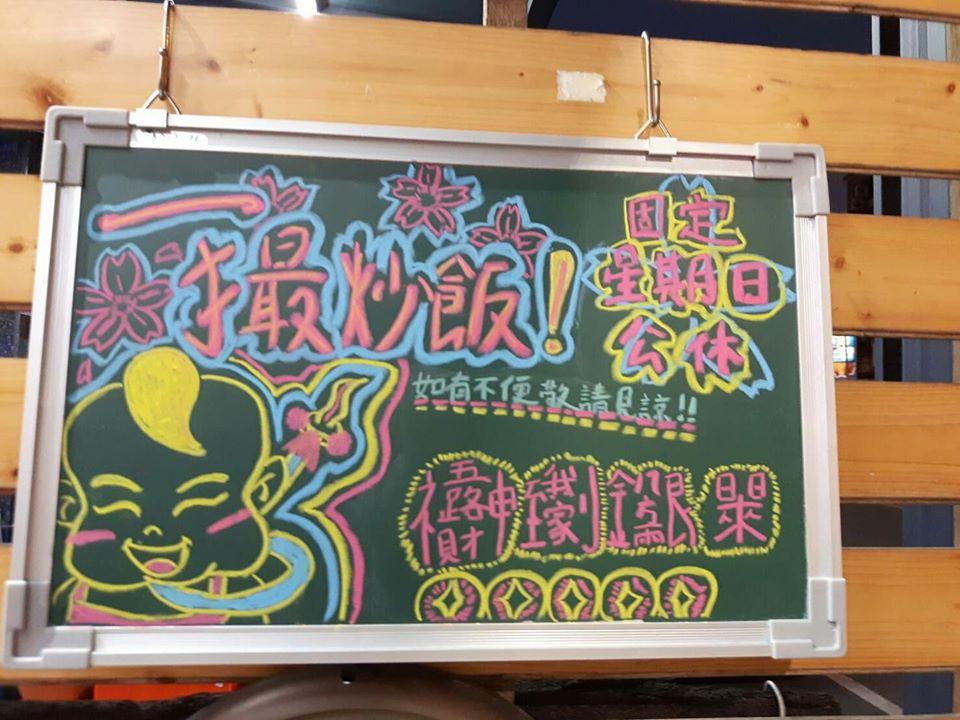 一撮炒飯!
固定
星期日
公休
如有不便敬請見諒!!